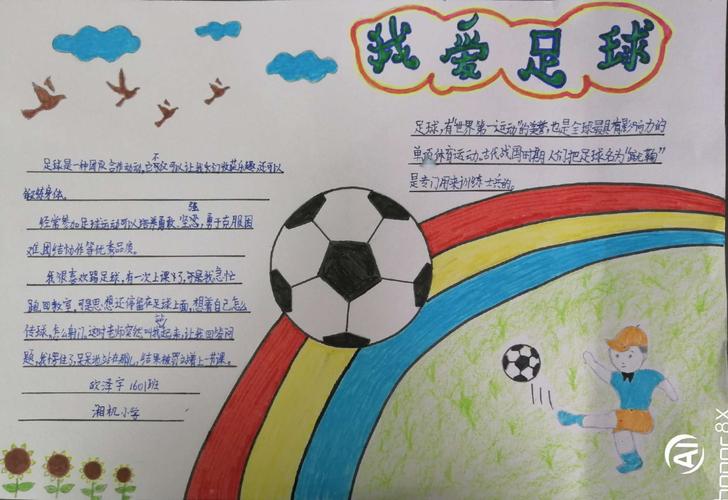 我爱足球
足球,有"世界第一运动"的美誉,也是全球最具有影响力的
单项体育运动,古代战国时期人们把足球名为"蹴鞠"
是专门用来训练士兵的。
足球是一种团队合作动动,它不仅可以让我们收获乐趣还可以
锻练身体。
经常参加足球运动可以培养勇敢、坚强,勇于克服困
难,团结协作等优秀品质。
我很喜欢踢足球,有一次上课了,可是我急忙
跑回教室,可是思想还停留在足球上面,想着自己怎么
传球,怎么射门,这时老师突然叫我起来,让我回答问
题,我愣住了,呆呆地站在那儿,结果被罚站着上一节课。
欧泽宇 1601班
湘机小学
AI
honor 8X